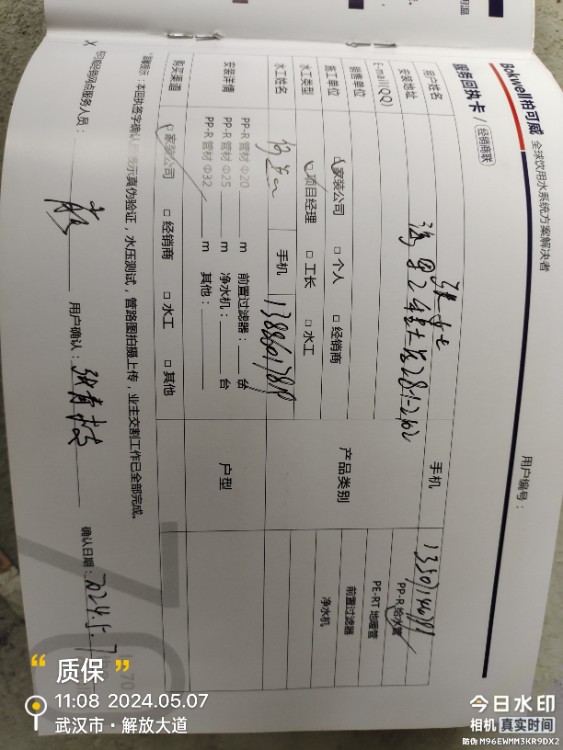 Bokwell柏可威 全球饮用水系统方案解决者
服务回执卡 / 经销商联
用户编号：
用户姓名
手机
安装地址
E-mail(QQ)
销售单位
产品类别
PP-R 给水管
PE-RT 地暖管
前置过滤器
净水机
施工单位 家装公司 □ 个人 □ 经销商
水工类型 项目经理 □ 工长 □ 水工
水工姓名
手机
安装详情
PP-R 管材 Φ20 m 前置过滤器： 台
PP-R 管材 Φ25 m 净水机： 台
PP-R 管材 Φ32 m 其他：
户型
购买渠道 家装公司 □ 经销商 □ 水工 □ 其他
本回执各字确认 示真伪验证，水压测试，管路图拍摄上传，业主交割工作已全部完成。
服务人员：
用户确认：
确认日期：2024.5.7
“质保”
11:08 2024.05.07
武汉市·解放大道
今日水印
相机 真实时间
防伪 M96EWMM3KR9DX2